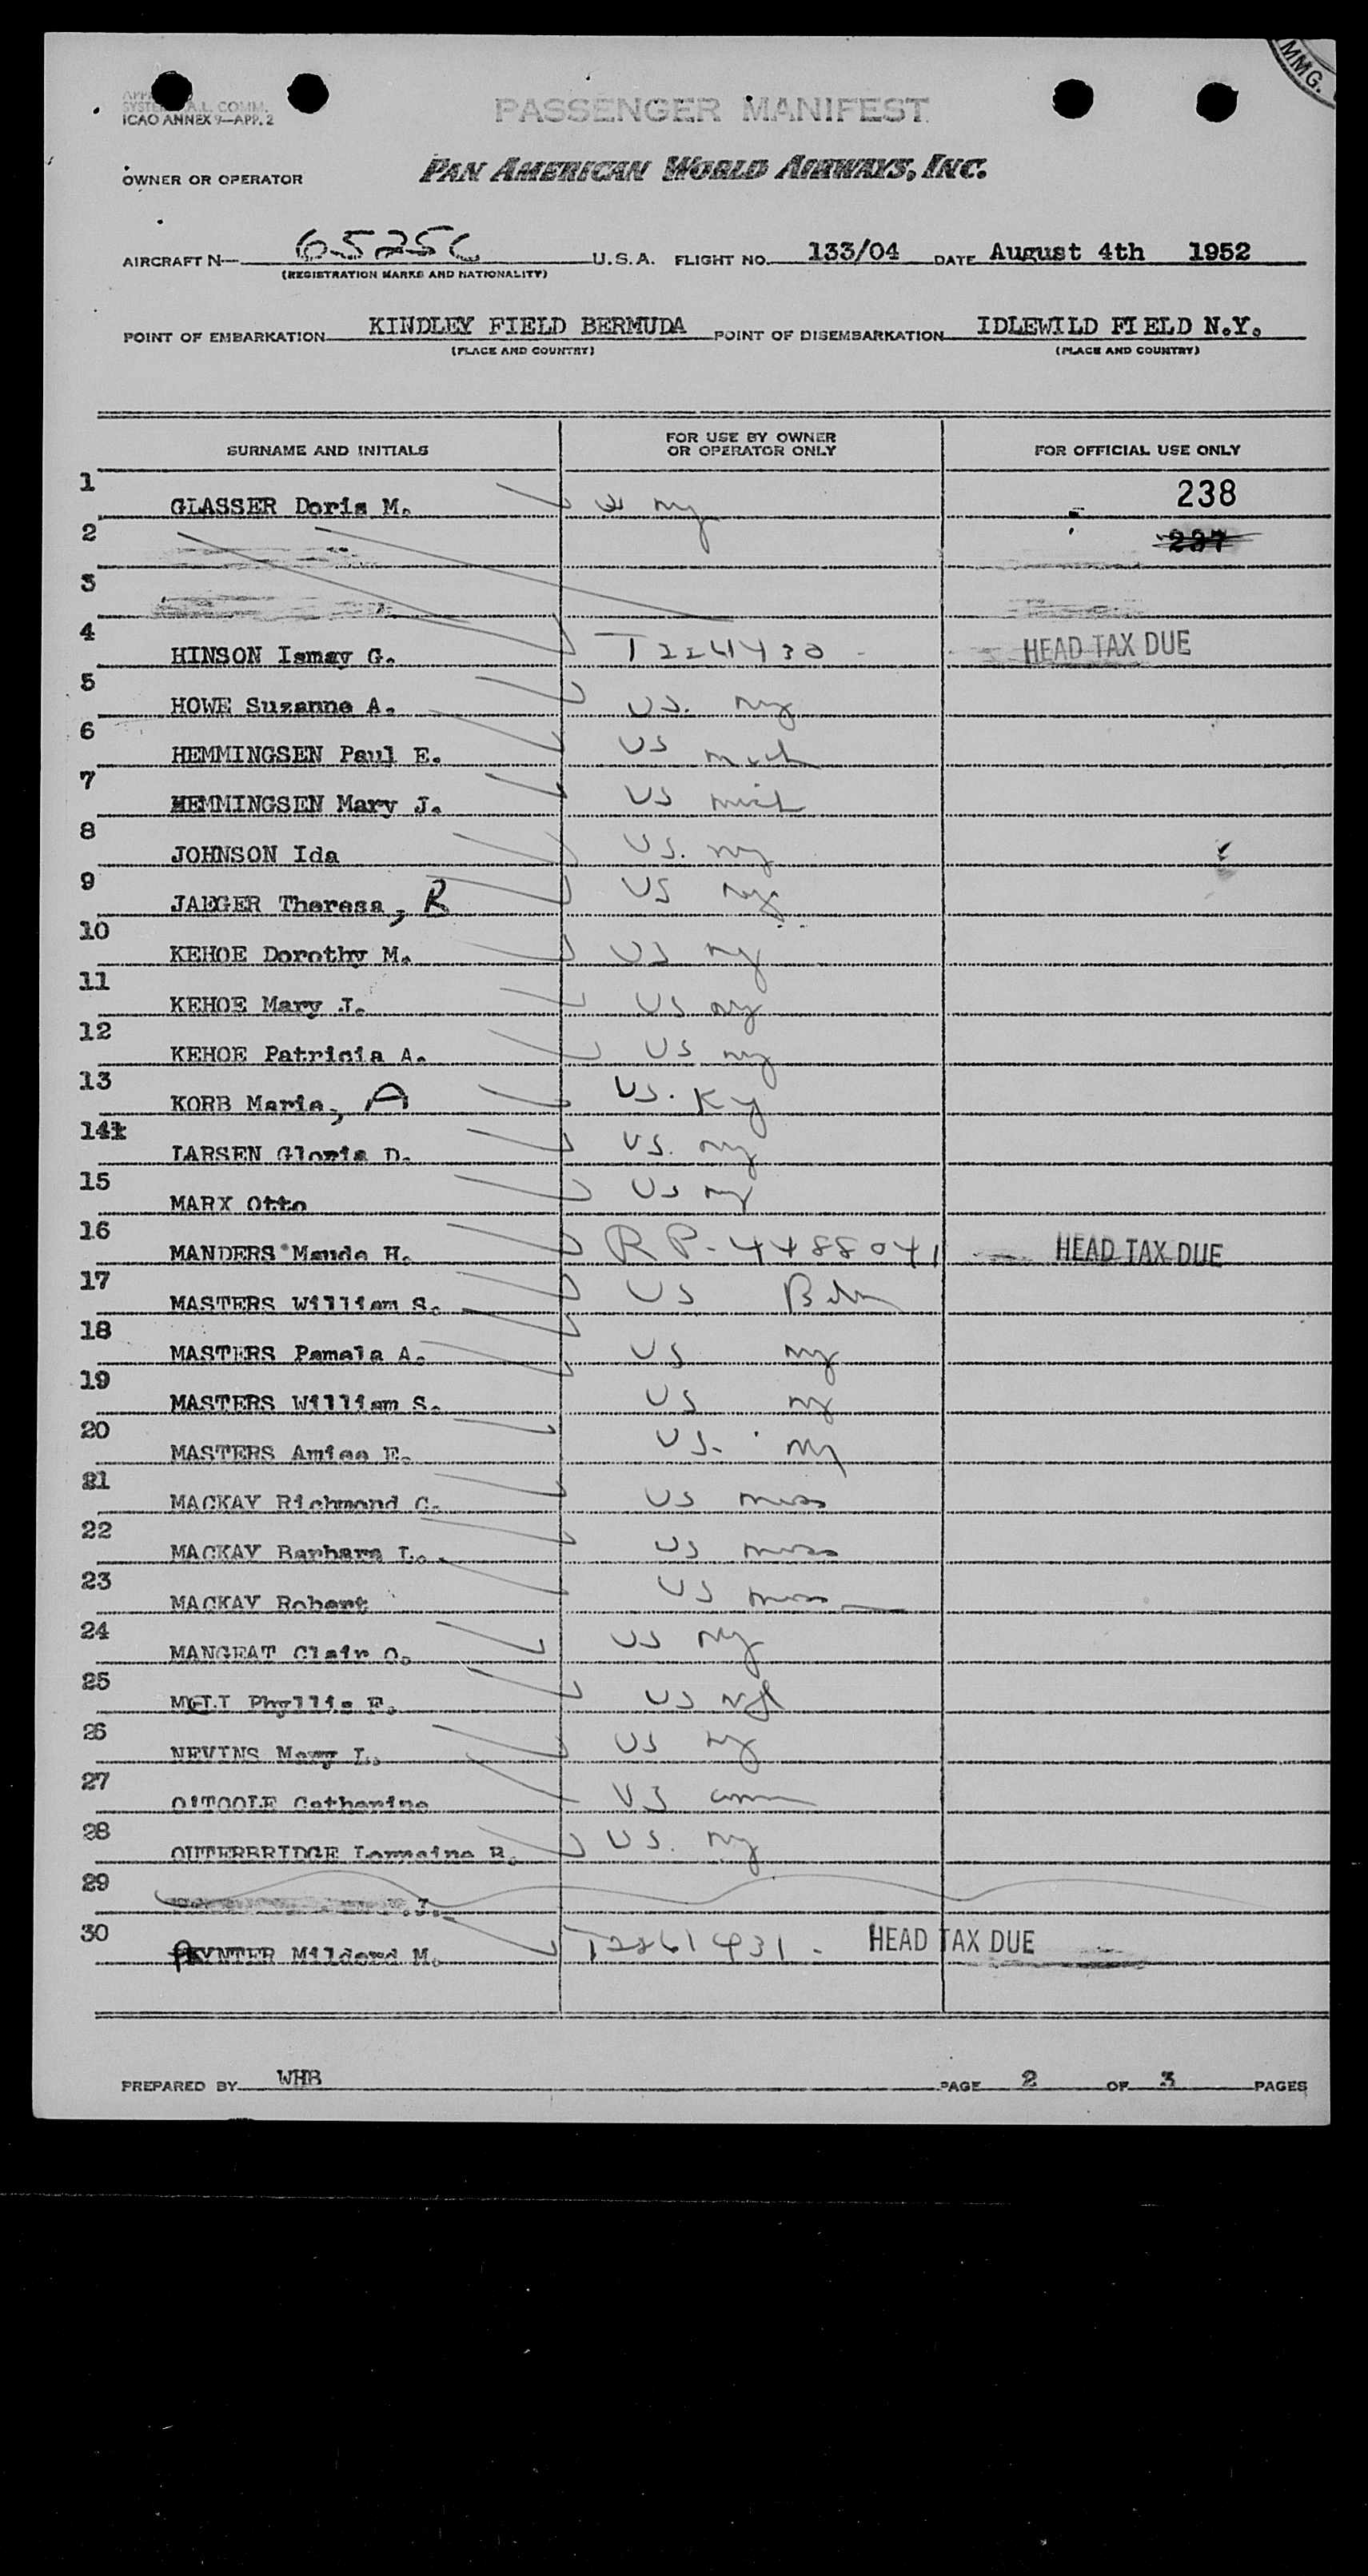 MMG.
SYSTEM A.L. COMM.
ICAO ANNEX 9—APP. 2
PASSENGER MANIFEST
OWNER OR OPERATOR PAN AMERICAN WORLD AIRWAYS, INC.
AIRCRAFT N— 6525C U.S.A. FLIGHT NO. 133/04 DATE August 4th 1952
(REGISTRATION MARKS AND NATIONALITY)
POINT OF EMBARKATION KINDLEY FIELD BERMUDA POINT OF DISEMBARKATION IDLEWILD FIELD N.Y.
(PLACE AND COUNTRY) (PLACE AND COUNTRY)
SURNAME AND INITIALS FOR USE BY OWNER OR OPERATOR ONLY FOR OFFICIAL USE ONLY
1 GLASSER Doris M. ny 238
2 237
3
4 HINSON Ismay G. HEAD TAX DUE
5 HOWE Suzanne A. US. ny
6 HEMMINGSEN Paul E. US mich
7 HEMMINGSEN Mary J. US mich
8 JOHNSON Ida US. ny
9 JAEGER Theresa, R US ny
10 KEHOE Dorothy M. US ny
11 KEHOE Mary J. US ny
12 KEHOE Patricia A. US ny
13 KORB Marie, A US. Ky
14 LARSEN Gloria D. US. ny
15 MARX Otto US ny
16 MANDERS Maude H. RP-4488041 HEAD TAX DUE
17 MASTERS William S. US
18 MASTERS Pamela A. US ny
19 MASTERS William S. US ny
20 MASTERS Amiee E. US. ny
21 MACKAY Richmond C. US mass
22 MACKAY Barbara L. US mass
23 MACKAY Robert US mass
24 MANGEAT Clair O. US ny
25 Phyllis F. US
26 NEVINS Mary L. US ny
27 O'TOOLE Catherine US conn
28 OUTERBRIDGE Lorraine B. US. ny
29 J.
30 PAYNTER Milderd M. HEAD TAX DUE
PREPARED BY WHB PAGE 2 OF 3 PAGES